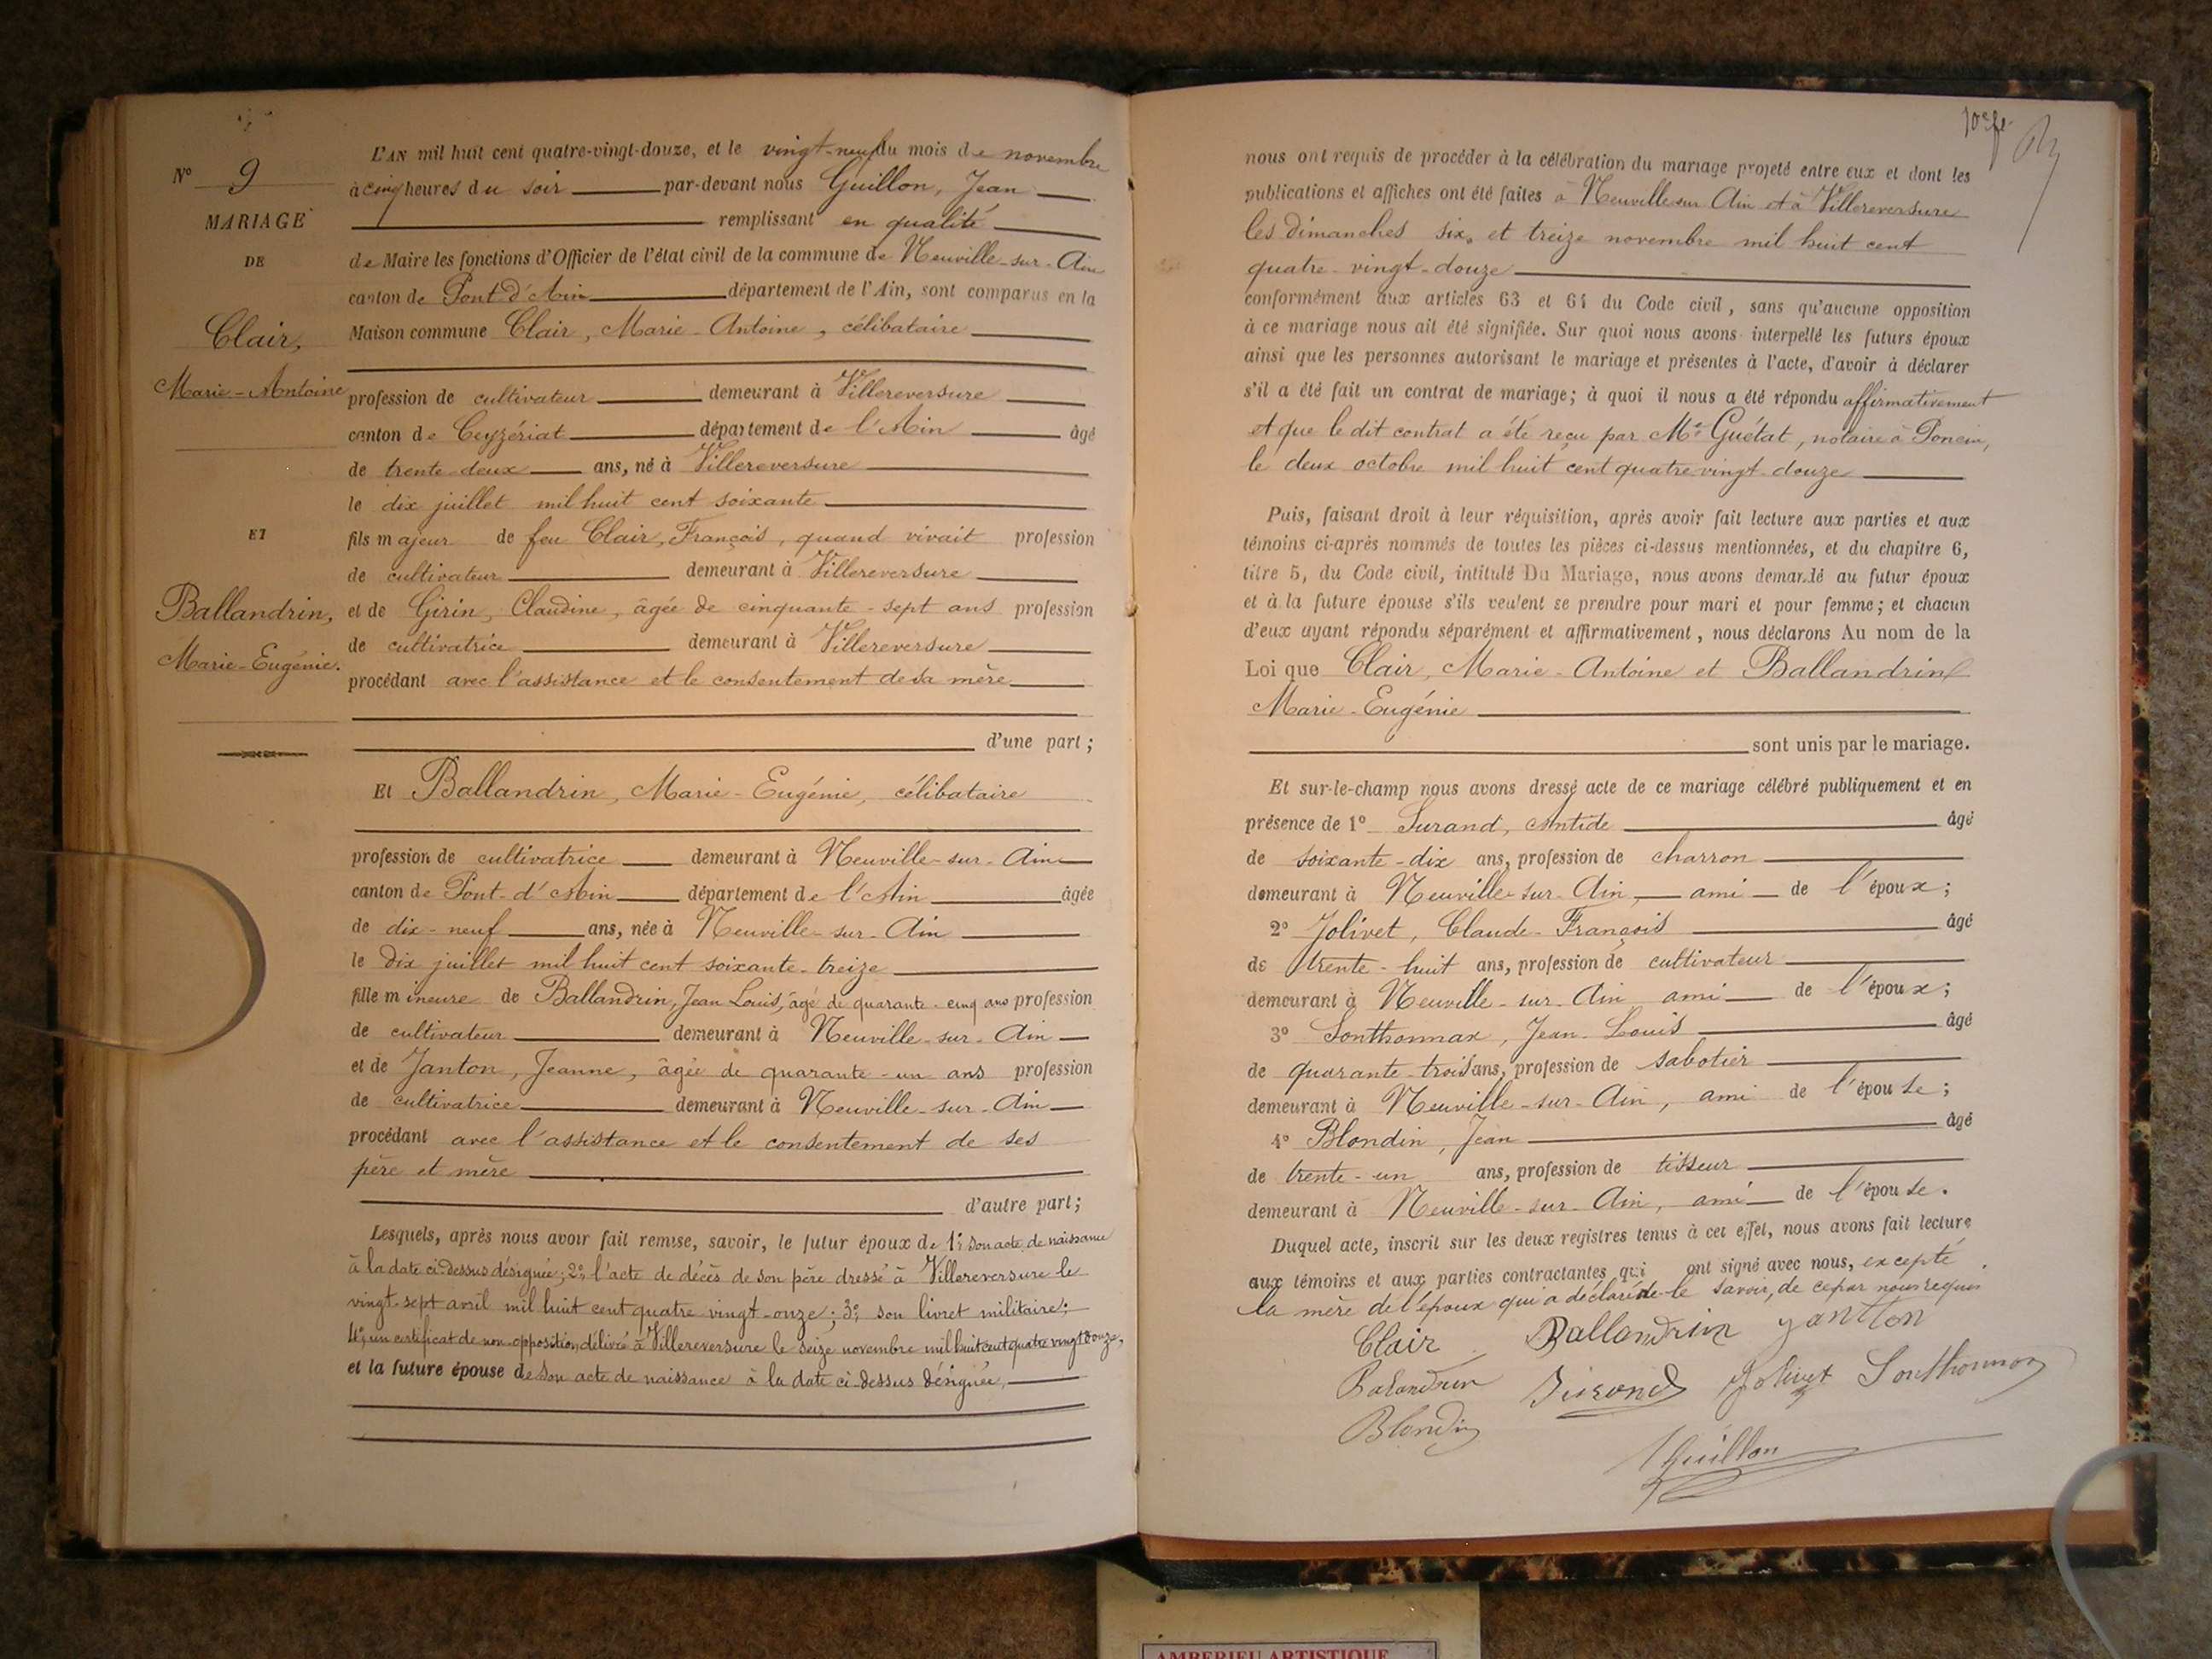 N° 9
MARIAGE
DE
Clair,
Marie-Antoine
ET
Ballandrin,
Marie-Eugénie.
L'AN mil huit cent quatre-vingt-douze, et le vingt-neuf du mois de novembre
à cinq heures du soir par-devant nous Guillon, Jean
remplissant en qualité
de Maire les fonctions d'Officier de l'état civil de la commune de Neuville-sur-Ain
canton de Pont-d'Ain département de l'Ain, sont comparus en la
Maison commune Clair, Marie-Antoine, célibataire
profession de cultivateur demeurant à Villereversure
canton de Ceyzériat département de l'Ain âgé
de trente-deux ans, né à Villereversure
le dix juillet mil huit cent soixante
fils majeur de feu Clair, François, quand vivait profession
de cultivateur demeurant à Villereversure
et de Girin, Claudine, âgée de cinquante-sept ans profession
de cultivatrice demeurant à Villereversure
procédant avec l'assistance et le consentement de sa mère
d'une part;
Et Ballandrin, Marie-Eugénie, célibataire
profession de cultivatrice demeurant à Neuville-sur-Ain
canton de Pont-d'Ain département de l'Ain âgée
de dix-neuf ans, née à Neuville-sur-Ain
le dix juillet mil huit cent soixante-treize
fille mineure de Ballandrin, Jean Louis, âgé de quarante-cinq ans profession
de cultivateur demeurant à Neuville-sur-Ain
et de Janton, Jeanne, âgée de quarante-un ans profession
de cultivatrice demeurant à Neuville-sur-Ain
procédant avec l'assistance et le consentement de ses
père et mère
d'autre part;
Lesquels, après nous avoir fait remise, savoir, le futur époux de 1° son acte de naissance
à la date ci-dessus désignée; 2° l'acte de décès de son père dressé à Villereversure le
vingt-sept avril mil huit cent quatre-vingt-onze; 3° son livret militaire;
4° un certificat de non-opposition délivré à Villereversure le seize novembre mil huit cent quatre vingt douze,
et la future épouse de son acte de naissance à la date ci-dessus désignée,
nous ont requis de procéder à la célébration du mariage projeté entre eux et dont les
publications et affiches ont été faites à Neuville sur Ain et à Villereversure
les dimanches six, et treize novembre mil huit cent
quatre-vingt-douze
conformément aux articles 63 et 64 du Code civil, sans qu'aucune opposition
à ce mariage nous ait été signifiée. Sur quoi nous avons interpellé les futurs époux
ainsi que les personnes autorisant le mariage et présentes à l'acte, d'avoir à déclarer
s'il a été fait un contrat de mariage; à quoi il nous a été répondu affirmativement
et que le dit contrat a été reçu par Me Guétat, notaire à Poncin,
le deux octobre mil huit cent quatre-vingt-douze
Puis, faisant droit à leur réquisition, après avoir fait lecture aux parties et aux
témoins ci-après nommés de toutes les pièces ci-dessus mentionnées, et du chapitre 6,
titre 5, du Code civil, intitulé Du Mariage, nous avons demandé au futur époux
et à la future épouse s'ils veulent se prendre pour mari et pour femme; et chacun
d'eux ayant répondu séparément et affirmativement, nous déclarons Au nom de la
Loi que Clair, Marie-Antoine et Ballandrin
Marie-Eugénie
sont unis par le mariage.
Et sur-le-champ nous avons dressé acte de ce mariage célébré publiquement et en
présence de 1° Surand, Antide âgé
de soixante-dix ans, profession de charron
demeurant à Neuville-sur-Ain, ami de l'époux;
2° Jolivet, Claude-François âgé
de trente-huit ans, profession de cultivateur
demeurant à Neuville-sur-Ain ami de l'époux;
3° Sonthonnax, Jean-Louis âgé
de quarante-trois ans, profession de sabotier
demeurant à Neuville-sur-Ain, ami de l'épouse;
4° Blondin, Jean âgé
de trente-un ans, profession de tisseur
demeurant à Neuville-sur-Ain, ami de l'épouse.
Duquel acte, inscrit sur les deux registres tenus à cet effet, nous avons fait lecture
aux témoins et aux parties contractantes qui ont signé avec nous, excepté
la mère de l'époux qui a déclaré ne le savoir, de ce par nous requis
Clair Ballandrin Janton
Balandrin Surand Jolivet Sonthonnax
Blondin
Guillon
AMBERIEU ARTISTIQUE